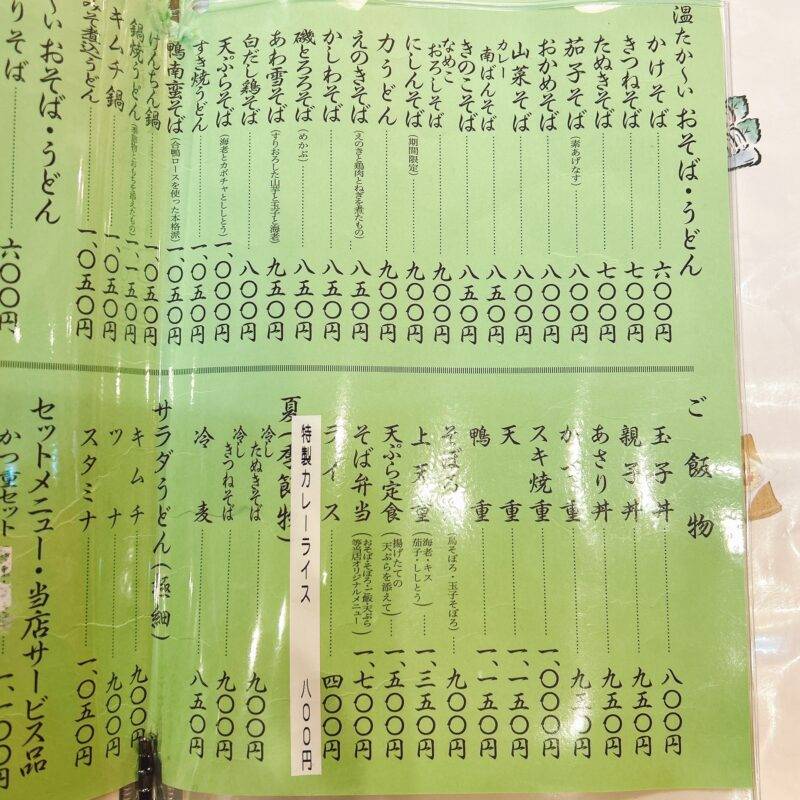 温たか〜い おそば・うどん
かけそば 六〇〇円
きつねそば 七〇〇円
たぬきそば 七〇〇円
茄子そば(素あげなす) 八〇〇円
おかめそば 八〇〇円
山菜そば 八〇〇円
カレー南ばんそば 八五〇円
きのこそば 八五〇円
なめこおろしそば 八〇〇円
にしんそば(期間限定) 九〇〇円
力うどん 九〇〇円
えのきそば(えのきと鶏肉とねぎを煮たもの) 八五〇円
かしわそば 八五〇円
磯とろろそば(めかぶ) 八五〇円
あわ雪そば(すりおろした山芋と玉子と海老) 九五〇円
白だし鶏そば 八〇〇円
天ぷらそば(海老とカボチャとししとう) 一、〇〇〇円
すき焼うどん 一、〇五〇円
鴨南蛮そば(合鴨ロースを使った本格派) 一、〇五〇円
けんちん鍋 一、〇五〇円
鍋焼うどん 一、一五〇円
キムチ鍋 一、〇五〇円
みそ煮込うどん 一、〇五〇円
〜い おそば・うどん
りそば 六〇〇円
ご飯物
玉子丼 八〇〇円
親子丼 九五〇円
あさり丼 九五〇円
かつ重 九五〇円
スキ焼重 一、〇〇〇円
天重 一、一五〇円
鴨重 一、一五〇円
そぼろ 鳥そぼろ・玉子そぼろ) 九〇〇円
上天 海老・キス 茄子・ししとう) 一、三五〇円
天ぷら定食(揚げたての天ぷらを添えて) 一、五〇〇円
そば弁当(おそば・そぼろ・ご飯天ぷら等当店オリジナルメニュー) 一、七〇〇円
ライス 四〇〇円
特製カレーライス 八〇〇円
夏季節物)
冷したぬきそば 九〇〇円
冷しきつねそば 九〇〇円
冷麦 八五〇円
サラダうどん(極細)
キムチ 九〇〇円
ツナ 九〇〇円
スタミナ 一、〇五〇円
セットメニュー・当店サービス品
かつ重セット 一、一〇〇円